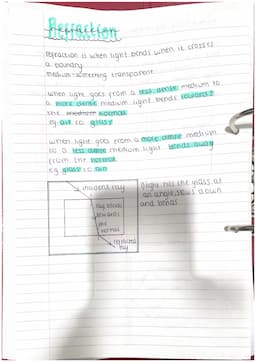 Refraction
refraction is when light bends when it crosses
a boundry
medium - something transparent
when light goes from a less dense medium to
a more dense medium light bends towards
the medium normal
eg air to glass
when light goes from a more dense medium
to a less dense medium light bends away
from the normal
eg glass to air
incident ray
ray bends
towards
the
normal
refracted
ray
light hits the glass at
an angle, slows down
and bends